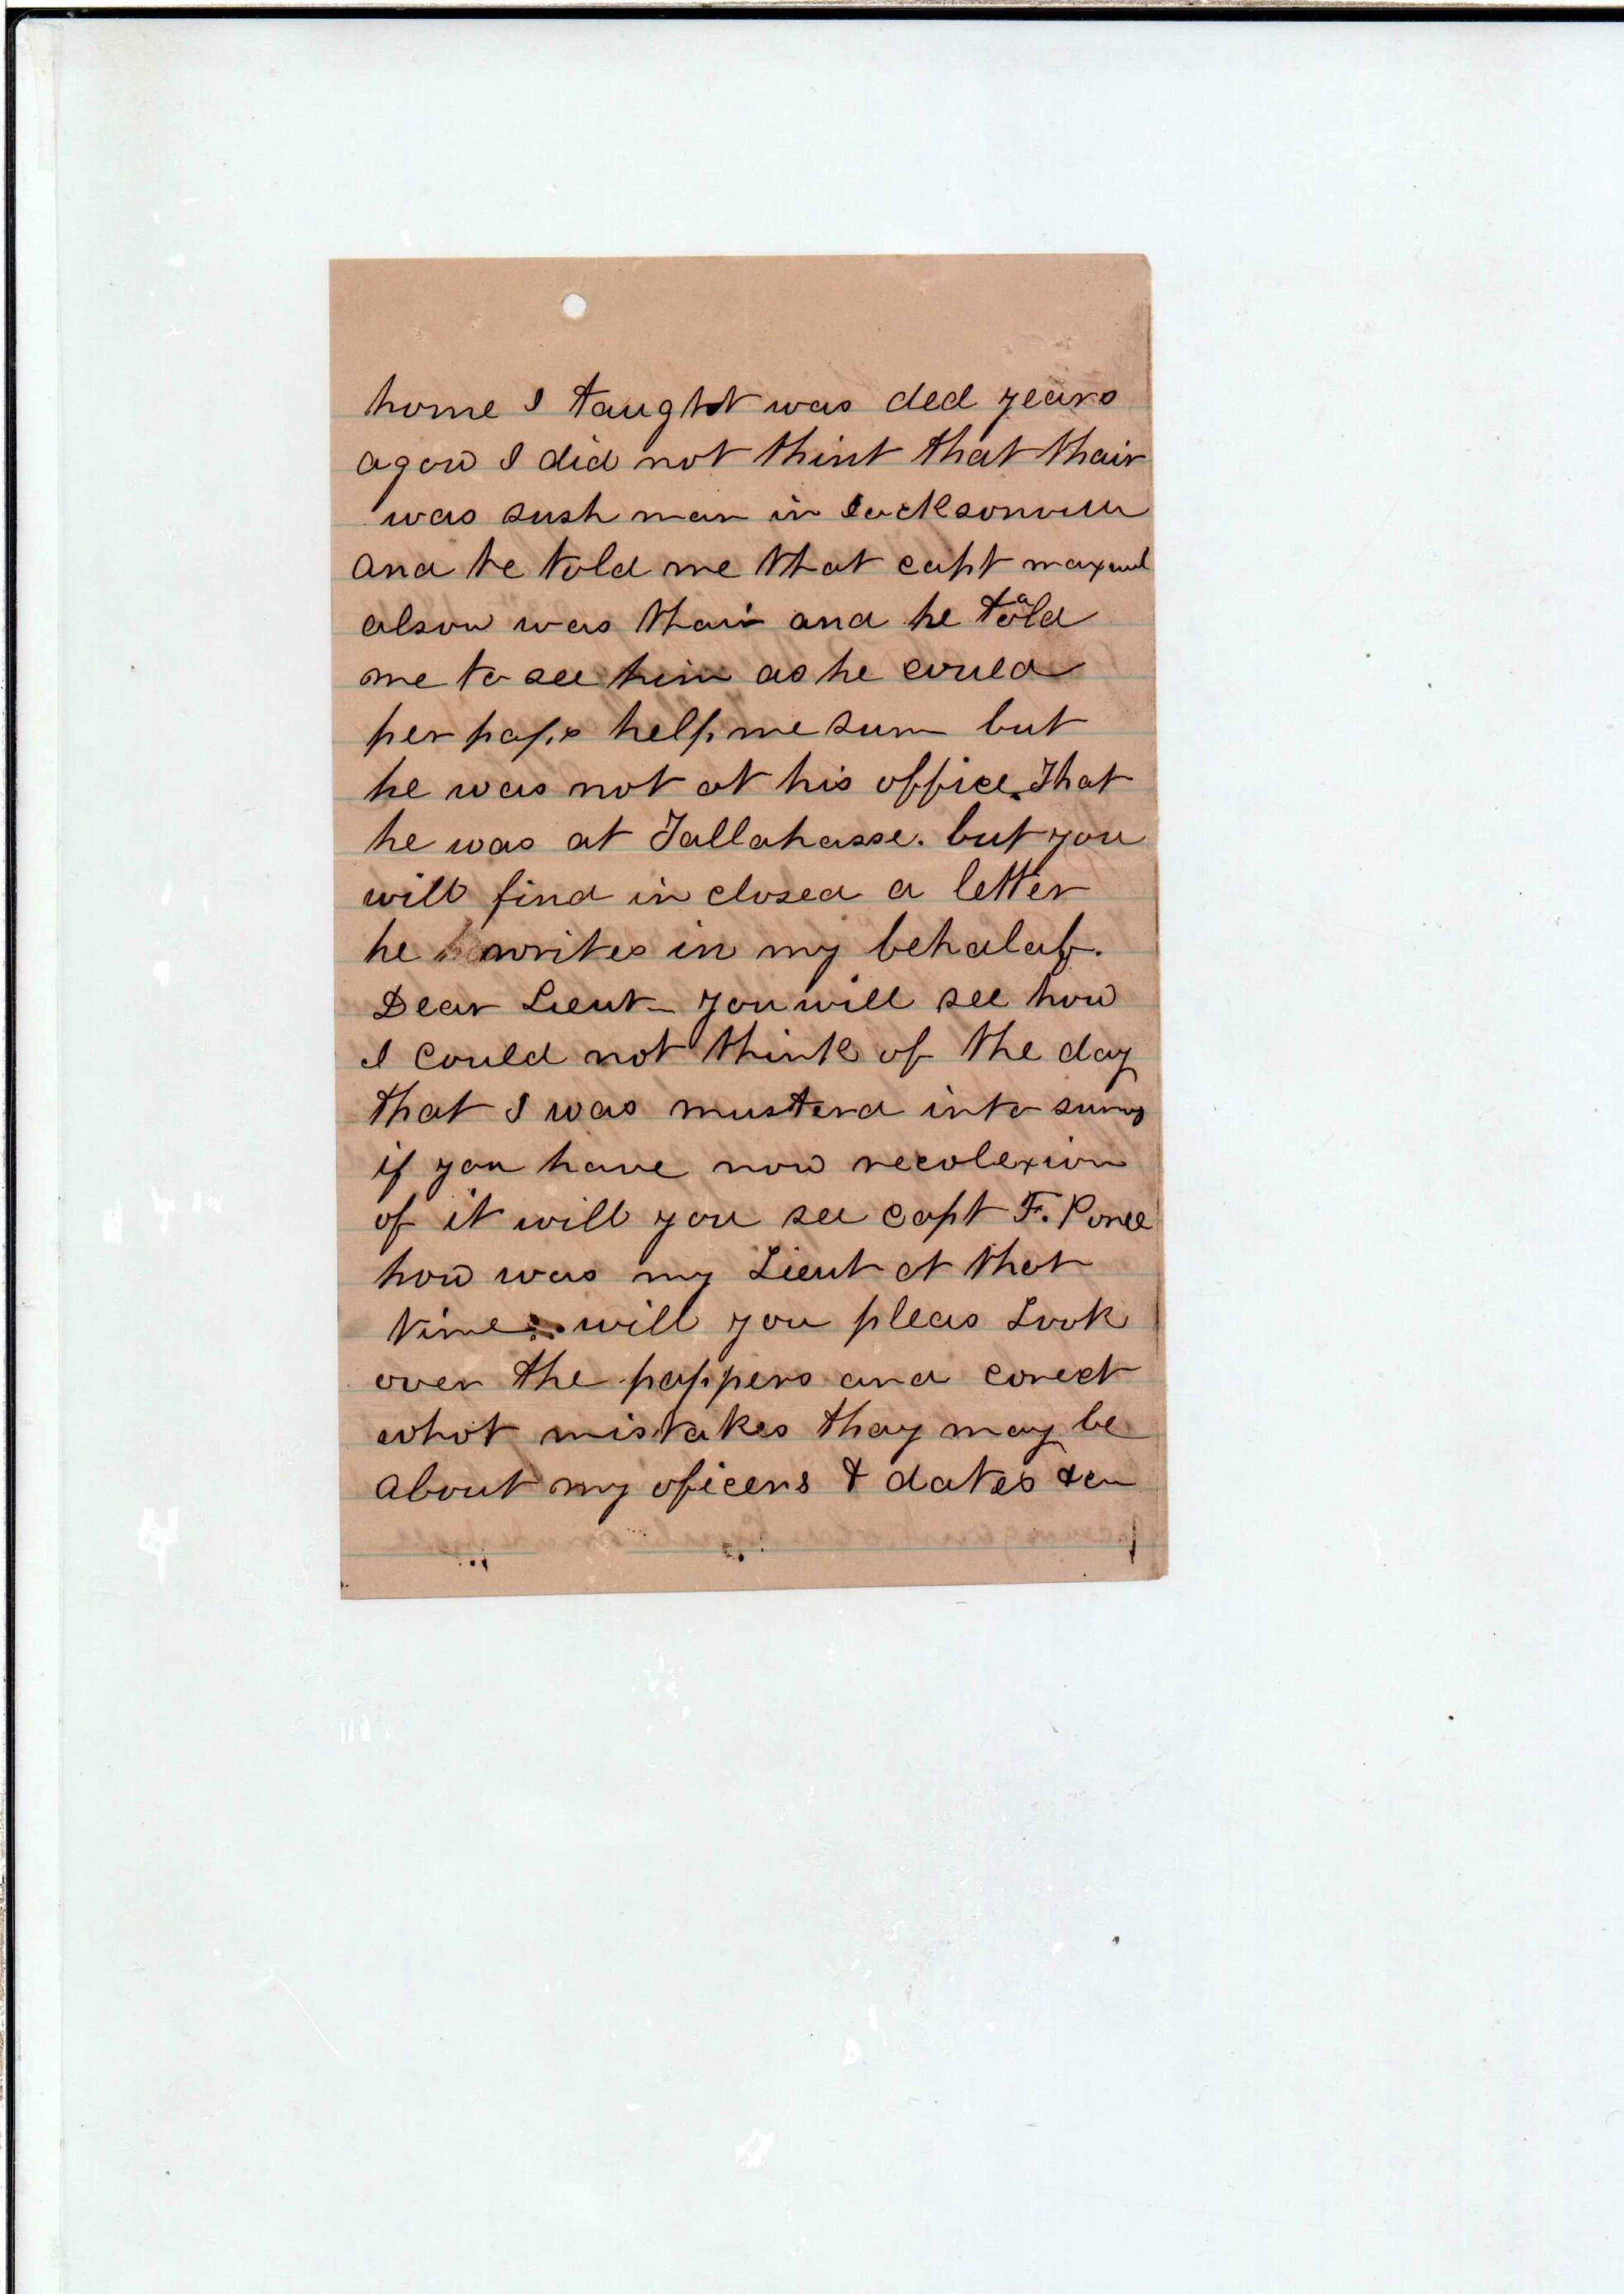 home I taught was ded years
agow I did not thint that thair
was sush man in Jacksonvill
and he told me that capt maxwel
alsow was thair and he told
me to see him as he could
per paps help me sum but
he was not at his office. That
he was at Tallahasse. but you
will find in closed a letter
he writes in my behalaf.
Dear Lieut- you will see how
I could not think of the day
that I was musterd into
if you have now recolexion
of it will you see capt F. Ponce
how was my Lieut at that
time will you pleas Look
over the pappers and corect
what mistakes thay may be
about my oficers & dates &c